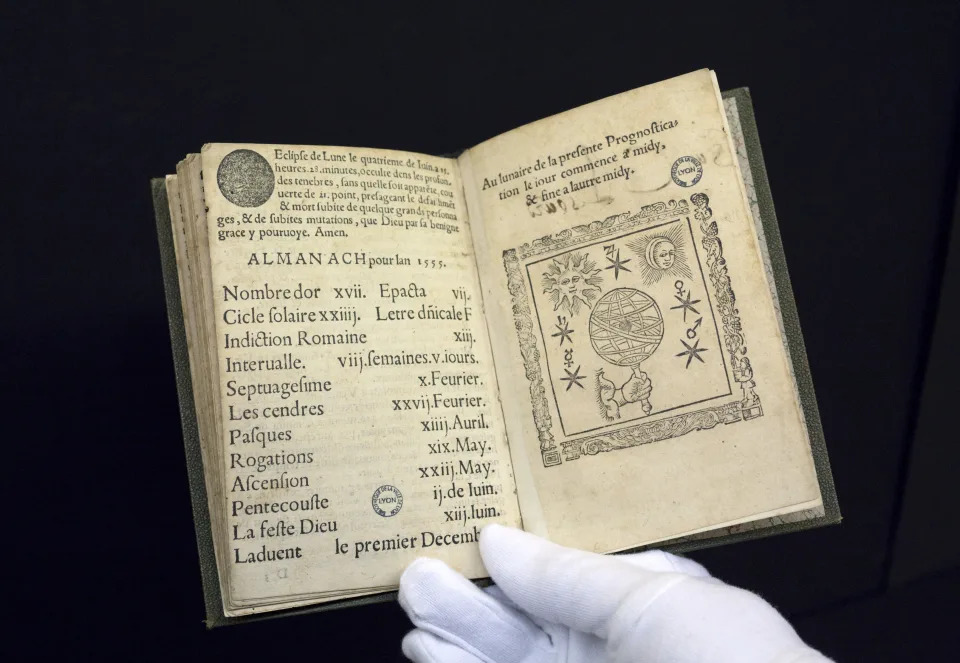 Eclipse de Lune le quatrieme de Iuin a
heures. 28. minutes, occulte dens les profon-
des tenebres, sans quelle soit apparẽte, cou
uerte de 21. point, presageant le
& mort subite de quelque grands personna
ges, & de subites mutations, que Dieu par sa benigne
grace y pouruoye. Amen.
ALMANACH pour lan 1555.
Nombre dor xvij. Epacta vij.
Cicle solaire xxiij. Letre dñicale F
Indiction Romaine xiij.
Interualle. viij. semaines. v. iours.
Septuagesime x. Feurier.
Les cendres xxvij. Feurier.
Pasques xiiij. Auril.
Rogations xix. May.
Ascension xxiij. May.
Pentecouste ij. de Iuin.
La feste Dieu xiij. Iuin.
Laduent le premier Decemb
LYON
Au lunaire de la presente Prognostica-
tion le iour commence a midy,
& fine a lautre midy.
LYON